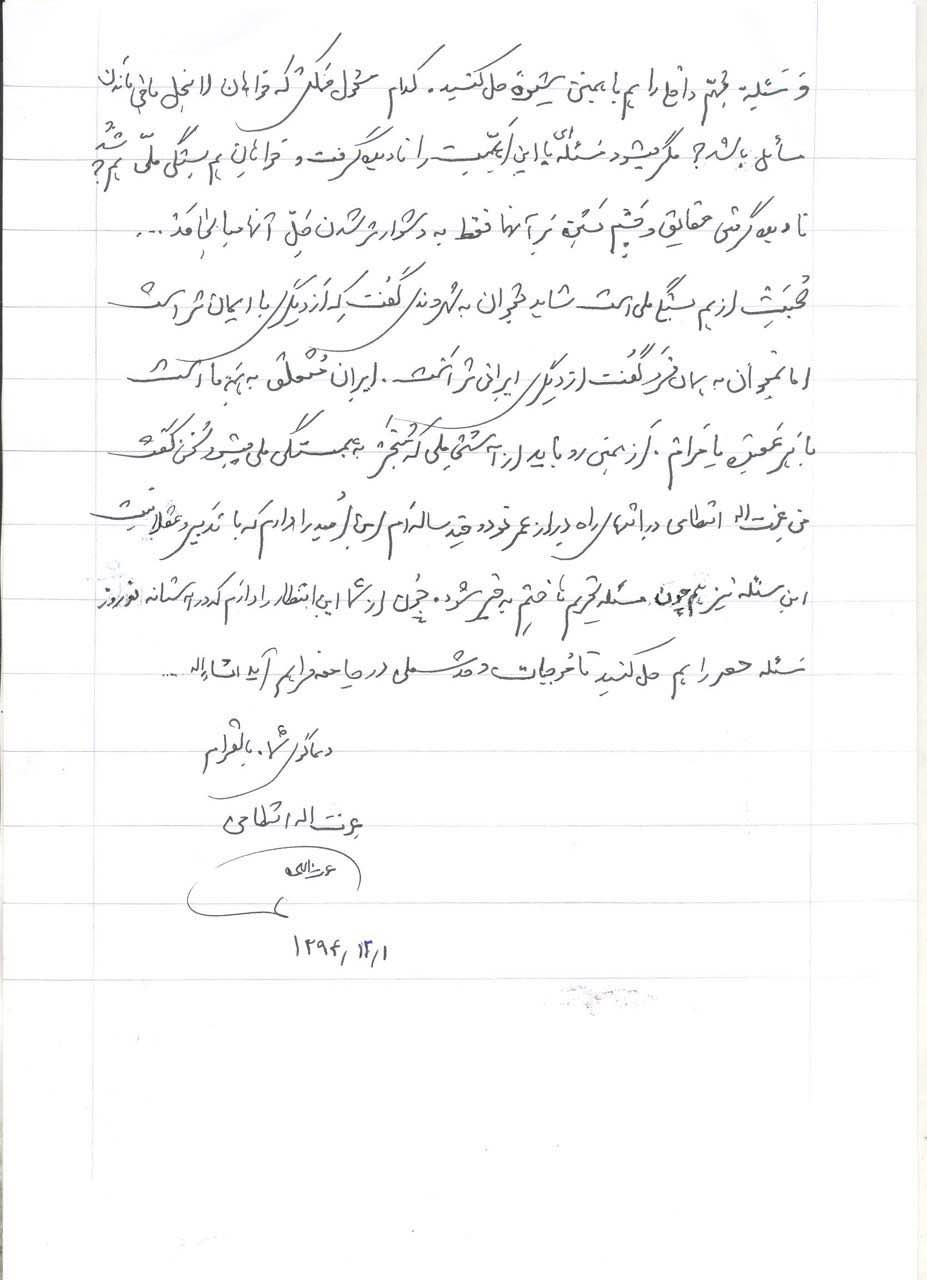 و مسئلهٔ مهمّ داخل را هم با همین شیوه حل کنید. کدام عقل که خواهان لاینحل باقی ماندن
مسائل باشد؟ مگر میشود مسئله‌ای با این اهمّیت را نادیده گرفت و خواهانِ هم بستگی ملّی هم شُد؟
نادیده گرفتن حقایق و چشم بستن بر آنها فقط به دشوارتر شدن حلّ آنها میانجامد...
صُحبت از هم بستگی ملی است شاید بتوان به شهروندی گفت که از دیگری با ایمان تر است
اما نمیتوان به همان فرد گفت از دیگری ایرانی تر است. ایران متعلق به همهٔ ما است
با هر عقیده یا مَرام. از همین رو باید از آشتی ملی که مُنجر به همبستگی ملی میشود سُخن گفت
من عزت اله انتظامی در انتهای راه دراز عمر نود و چند ساله‌ام این اُمید را دارم که با تدبیر و عقلانیت
این مسئله نیز همچون مسئله تحریم ها ختم به خیر شود. چون از شما این انتظار را دارم که در آستانه نوروز
مسئله حصر را هم حل کنید تا موجبات وحدت ملی در جامعه فراهم آید انشاءاله ...
دعاگوی شما. با احترام
عزت اله انتظامی
۱۳۹۴/۱۲/۱